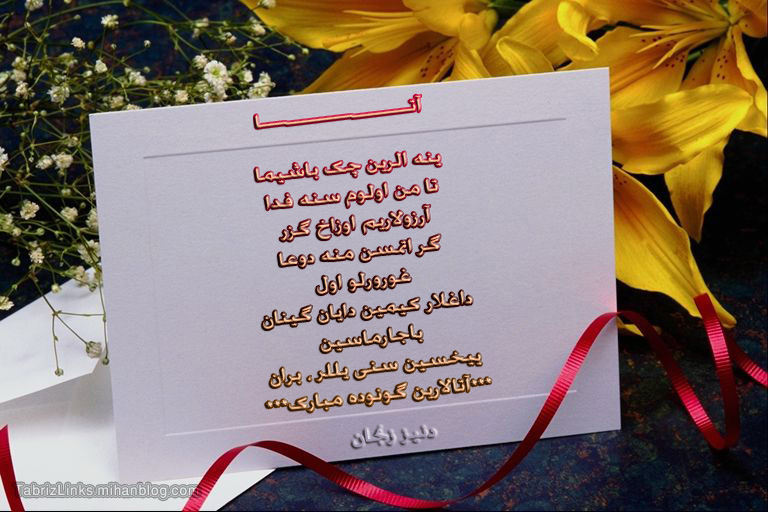 آنـــــــــا
ینه الرین چک باشیما
تا من اولوم سنه فدا
آرزولاریم اوزاخ گزر
گر ائتمسن منه دوعا
غورورلو اول
داغلار کیمین دایان گینان
باجارماسین
ییخسین سنی یللر ، بران
***آنالارین گونوده مبارک***
دنیز
TabrizLinks.mihanblog.com